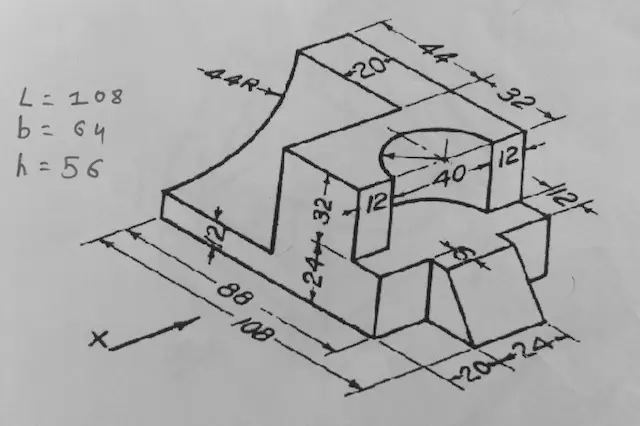 L = 108
b = 64
h = 56
44R
44
20
32
12
40
12
32
12
12
24
6
88
108
X
20
24